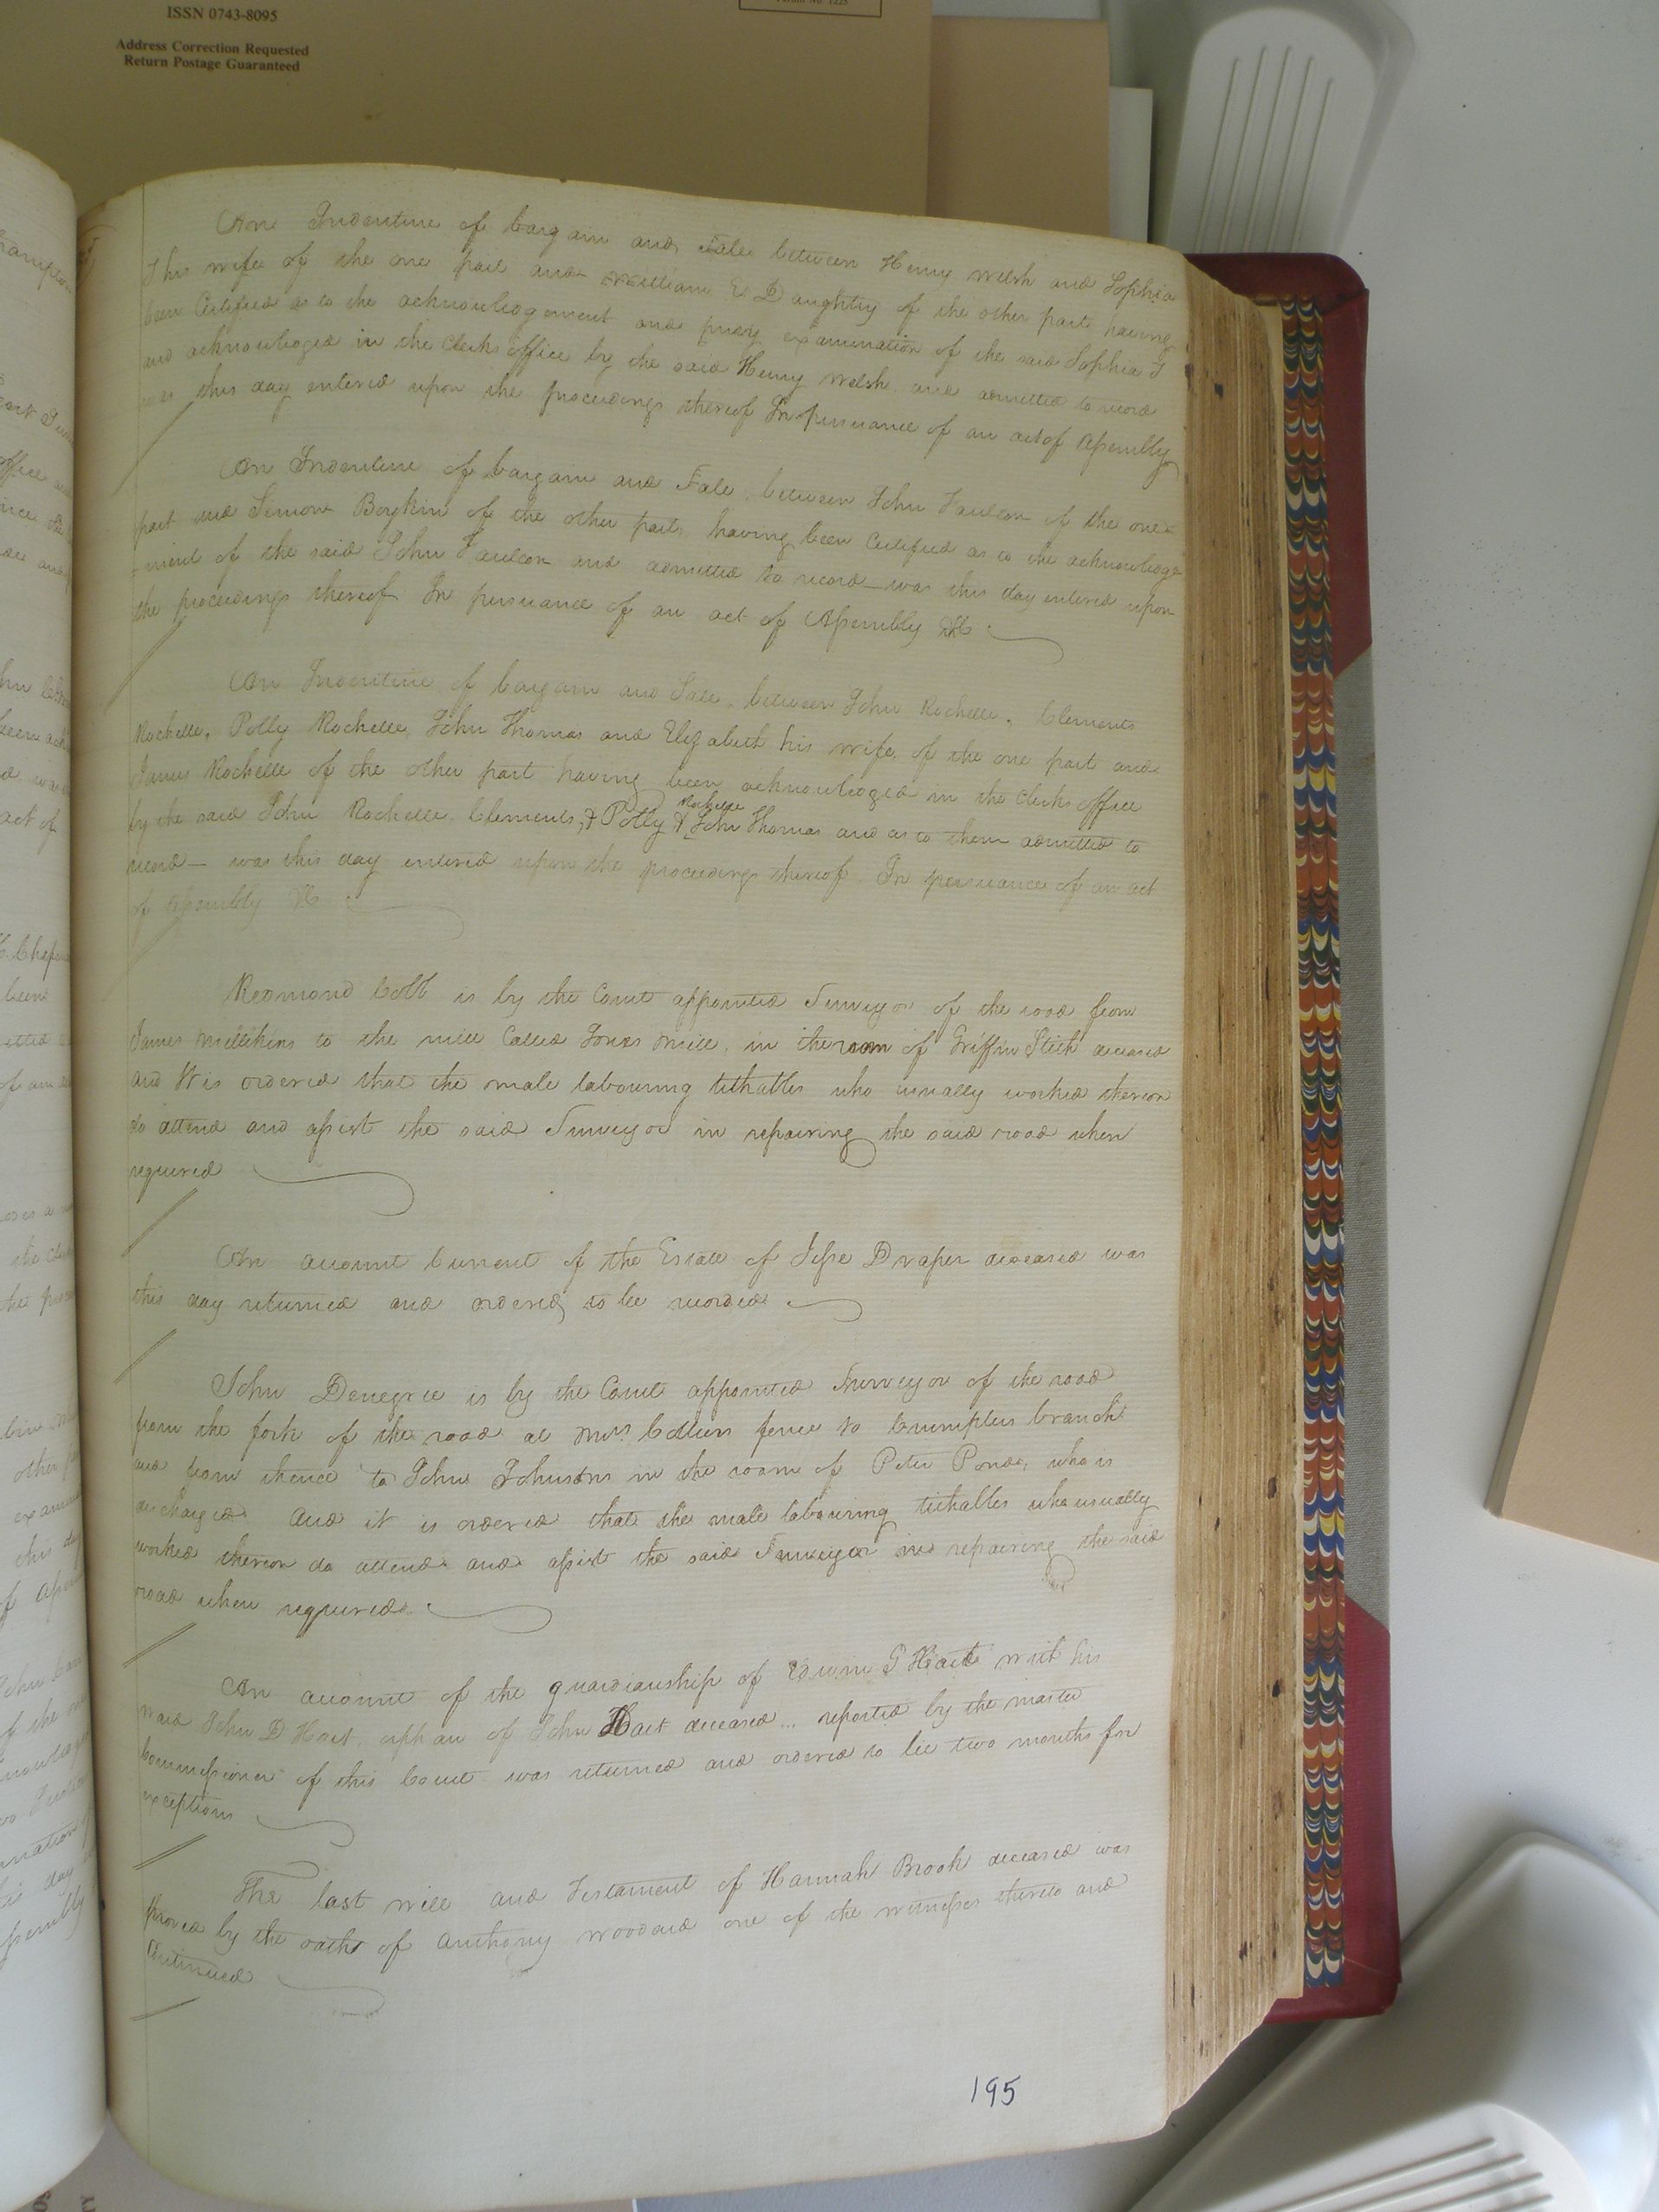 ISSN 0743-8095
Address Correction Requested
Return Postage Guaranteed
An Indenture of bargain and Sale between Henry Welsh and Sophia
T his wife of the one part and William E D aughtry of the other part having
been Certified as to the acknowledgement and privy examination of the said Sophia T
and acknowledged in the Clerks office by the said Henry Welsh and admitted to record
was this day entered upon the proceedings thereof In persuance of an act of Assembly
An Indenture of bargain and Sale between John Faulcon of the one
part and Simon Boykin of the other part having been Certified as to the acknowledge
=ment of the said John Faulcon and admitted to record – was this day entered upon
the proceedings thereof In persuance of an act of Assembly &c
An Indenture of bargain and Sale, between John Rochelle, Clements
Rochelle, Polly Rochelle, John Thomas and Elizabeth his wife, of the one part and
James Rochelle of the other part having been acknowledged in the Clerks office
by the said John Rochelle, Clements, & Polly Rochelle & John Thomas and as to them admitted to
record – was this day entered upon the proceedings thereof In persuance of an act
of Assembly &c
Redmond Cobb is by the Court appointed Surveyor of the road from
James Millikins to the mill Called Jones mill, in the room of Griffin Stith deceased
and It is ordered that the male labouring tithables who usually worked thereon
do attend and assist the said Surveyor in repairing the said road when
required
An account Current of the Estate of Jesse Draper deceased was
this day returned and ordered to be recorded
John Denegrie is by the Court appointed Surveyor of the road
from the fork of the road at Mrs. fence to Crumplers branch
and from thence to John Johnsons in the room of Peter Pond, who is
discharged. And it is ordered that the male labouring tithables who usually
worked thereon do attend and assist the said Surveyor in repairing the said
road when required
An account of the guardianship of Edwin Hart with his
Ward John D Hart, orphan of John Hart deceased ... reported by the master
Commissioner of this Court was returned and ordered to lie two months for
exceptions
The last will and Testament of Hannah Brook deceased was
proved by the oaths of Anthony Woodard one of the witnesses thereto and
Continued
195